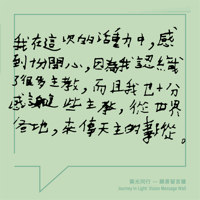 我在這次的活動中,感
到十份開心,因為我認識
了很多主教,而且我也十分
感謝這些主教,從世界
各地,來傳天主的
晨光同行 — 願景留言牆
Journey in Light: Vision Message Wall